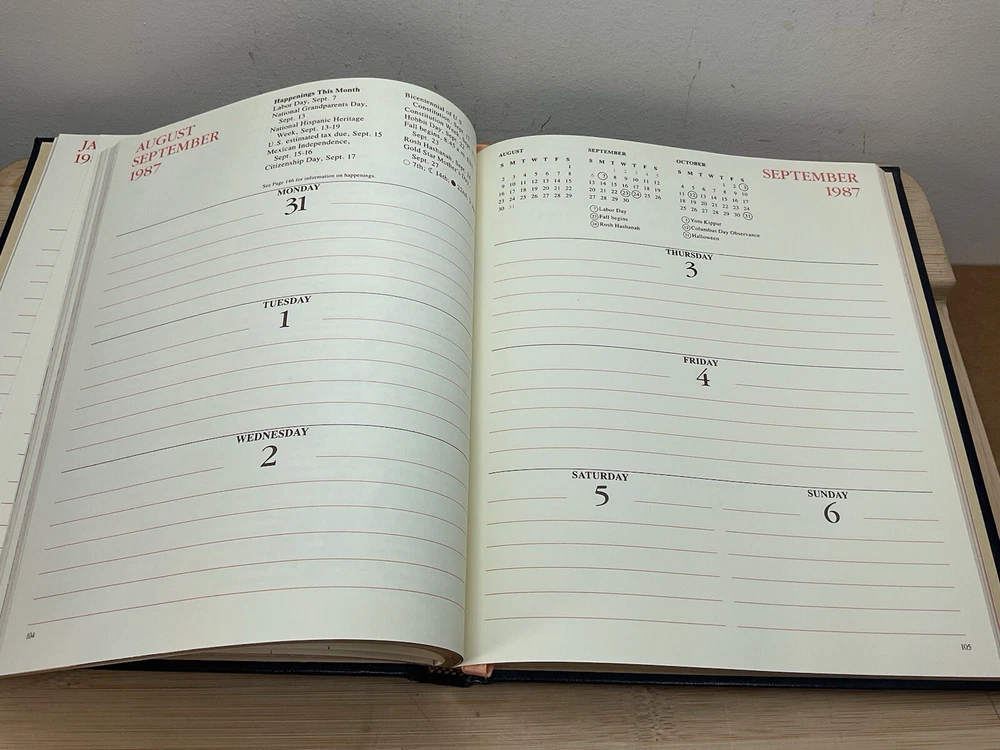 JA
19
AUGUST
SEPTEMBER
1987
Happenings This Month
Labor Day, Sept. 7
National Grandparents Day,
Sept. 13
National Hispanic Heritage
Week, Sept. 13-19
U.S. estimated tax due, Sept. 15
Mexican Independence,
Sept. 15-16
Citizenship Day, Sept. 17
Bicentennial of U.S.
Constitution
Constitution Week
Hobbit Day, Sept. 22
Fall begins
Sept. 23
Rosh Hashanah
Gold Star Mother's
Sept. 27
7th; 14th;
See Page 146 for information on happenings.
MONDAY
31
TUESDAY
1
WEDNESDAY
2
104
AUGUST
S M T W T F S
1
2 3 4 5 6 7 8
9 10 11 12 13 14 15
16 17 18 19 20 21 22
23 24 25 26 27 28 29
30 31
SEPTEMBER
S M T W T F S
1 2 3 4 5
6 7 8 9 10 11 12
13 14 15 16 17 18 19
20 21 22 23 24 25 26
27 28 29 30
7 Labor Day
23 Fall begins
24 Rosh Hashanah
OCTOBER
S M T W T F S
1 2 3
4 5 6 7 8 9 10
11 12 13 14 15 16 17
18 19 20 21 22 23 24
25 26 27 28 29 30 31
3 Yom Kippur
12 Columbus Day Observance
31 Halloween
SEPTEMBER
1987
THURSDAY
3
FRIDAY
4
SATURDAY
5
SUNDAY
6
105